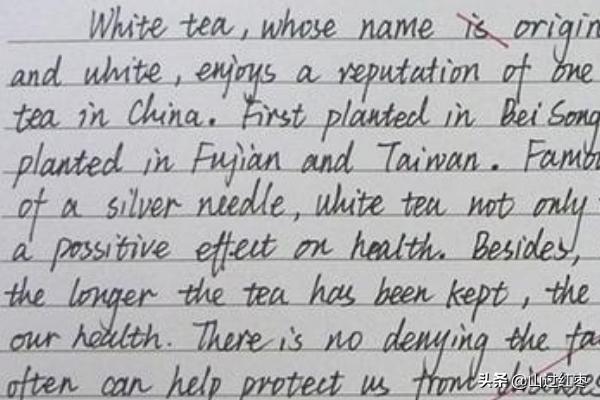 White tea, whose name is origin
and white, enjoys a reputation of one
tea in China. First planted in Bei Song
planted in Fujian and Taiwan. Famo
of a silver needle, white tea not only
a possitive effect on health. Besides,
the longer the tea has been kept, the
our health. There is no denying the fa
often can help protect us from diseases
头条 @山过红枣